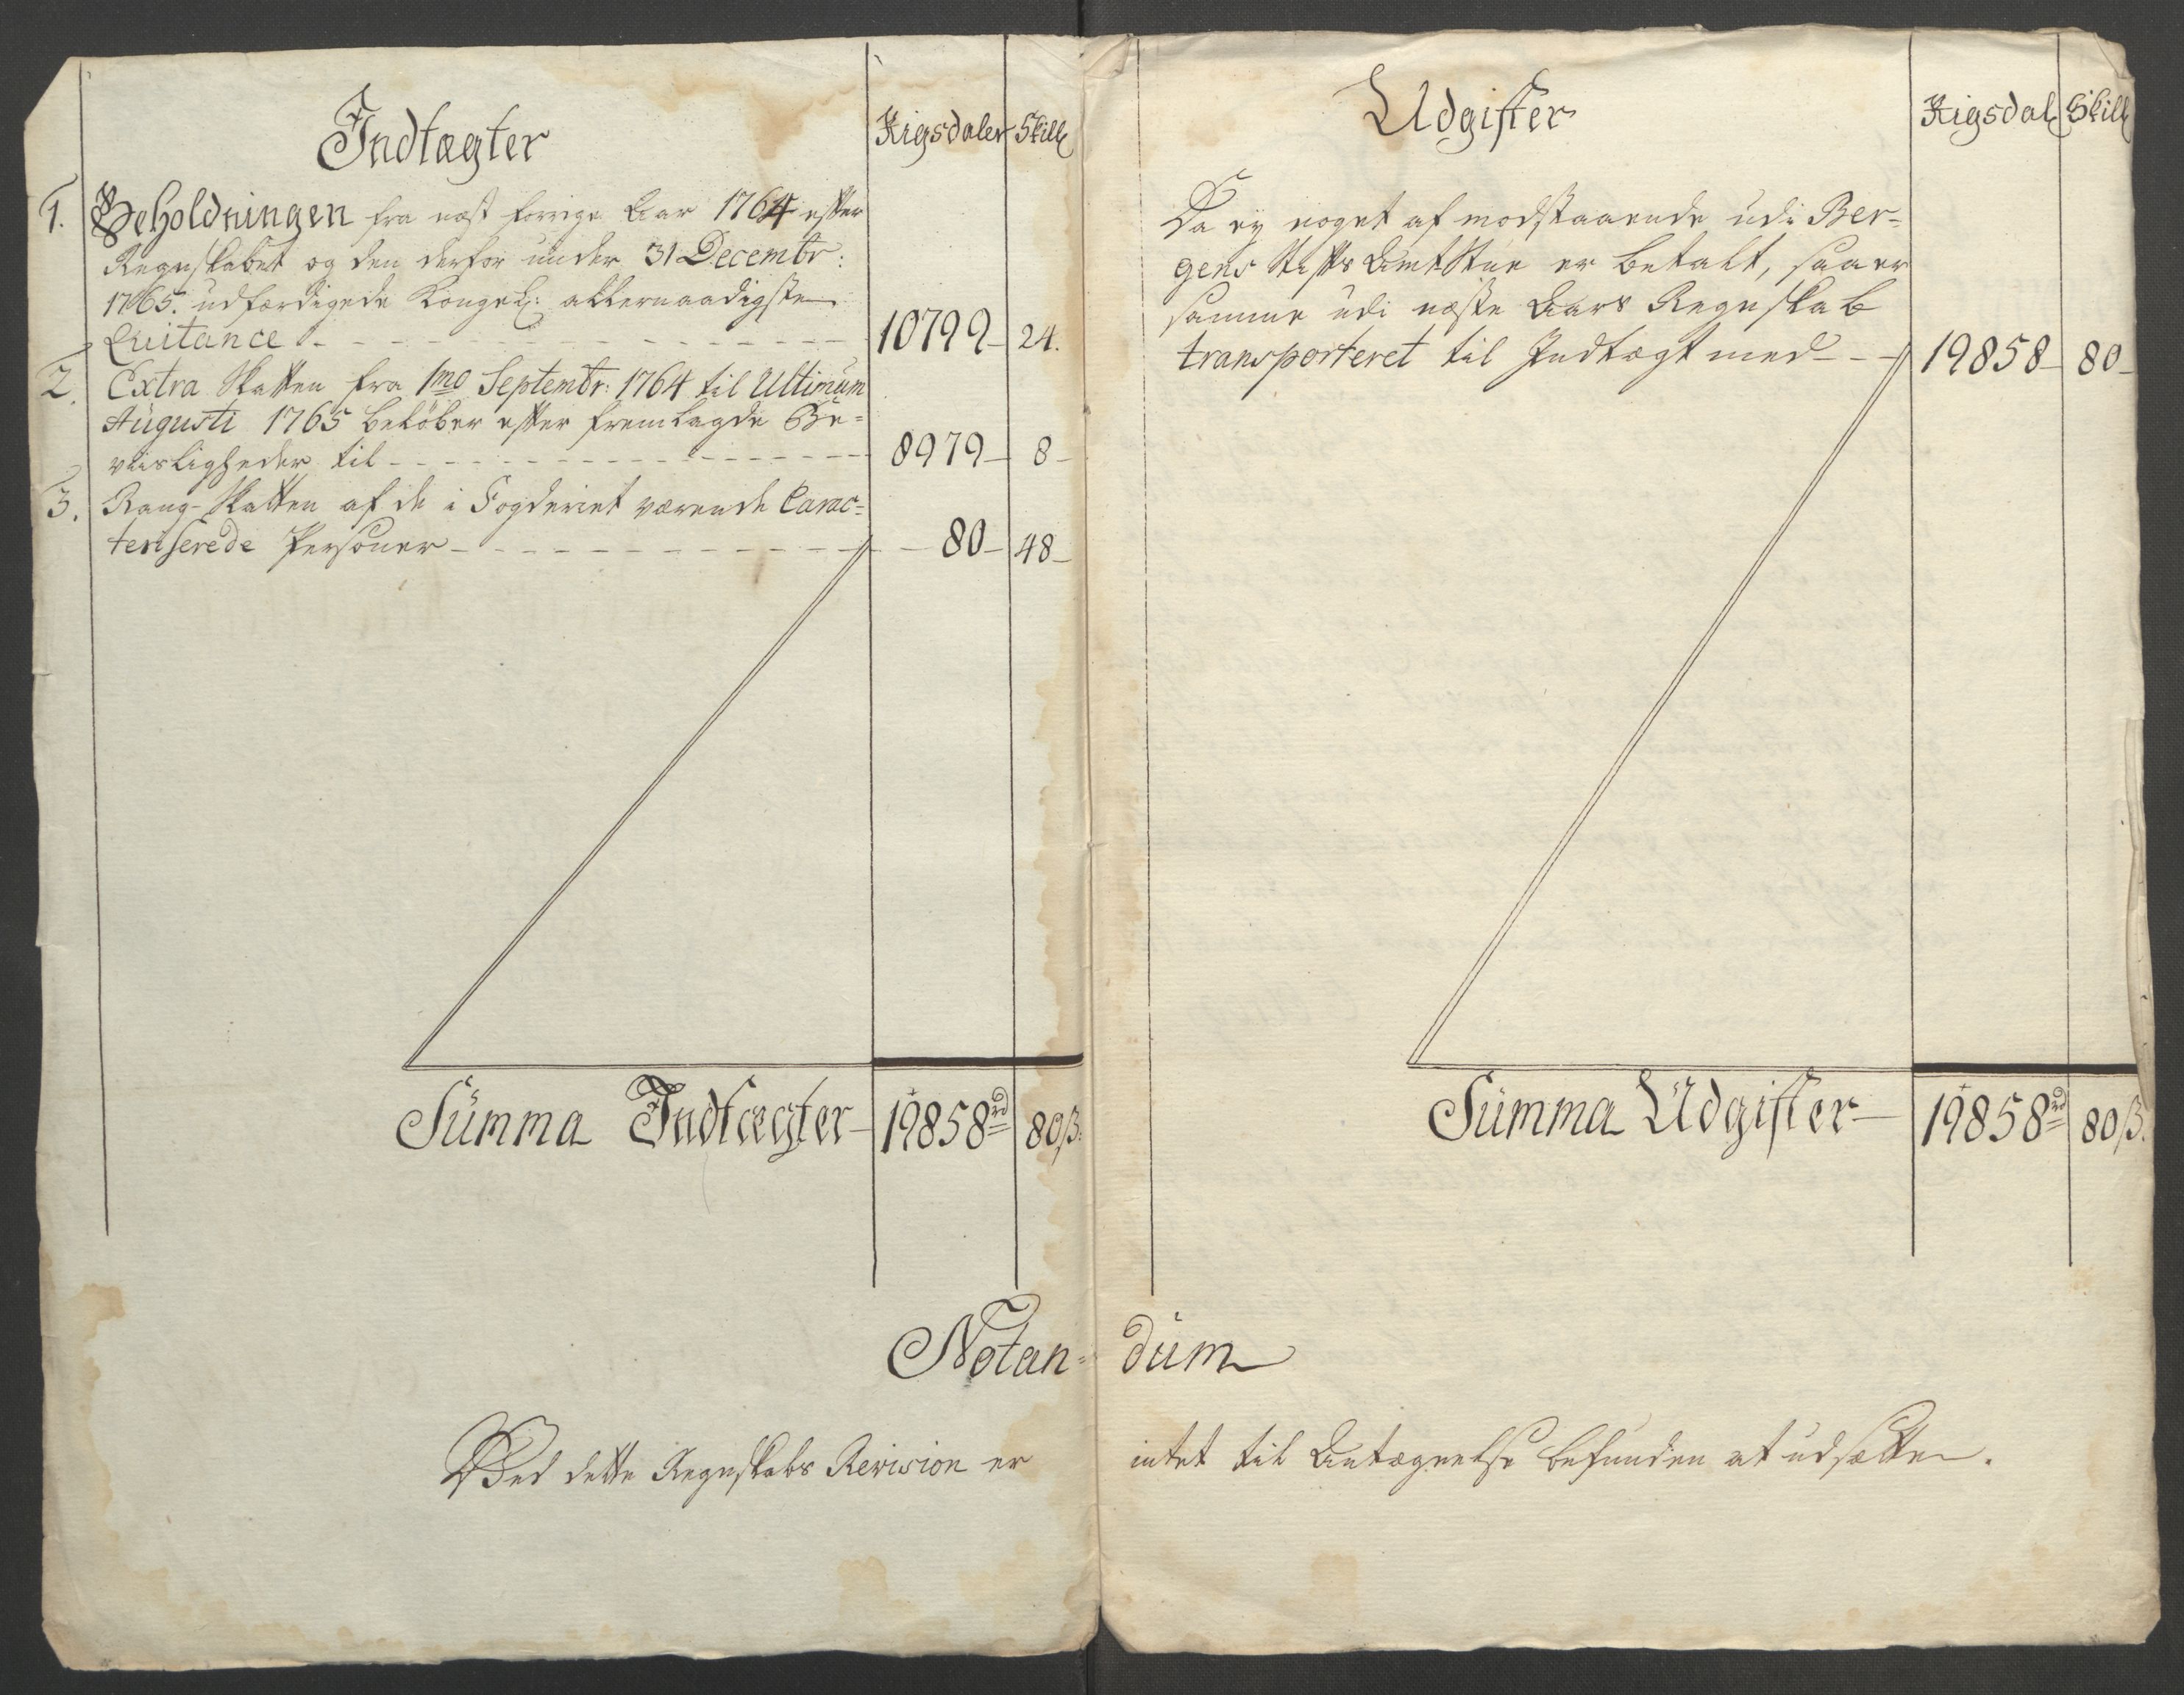 Indtægter
Rigsdaler Skill
1. Beholdningen fra næst forrige Aar 1764 efter
Regnskabet og den derfor under 31 Decembr:
1765. udfærdigede Kongel: allernaadigste
Quitance - - - 10799 - 24.
2. Extra Skatten fra 1mo Septembr: 1764 til Ultimum
Augusti 1765 beløber efter fremlagde Be-
viisligheder til - - - 8979 - 8 -
3. Rang-Skatten af de i Fogderiet værende Carac-
teriserede Personer - - - 80 - 48 -
Summa Indtægter - 19858 rd 80 ß.
Udgifter
Rigsdal Skill
Da ey noget af modstaaende udi Ber-
gens Stifts AmtStue er betalt, saa er
samme udi næste Aars Regnskab
transporteret til Indtægt med - - - 19858 - 80 -
Summa Udgifter - 19858 rd 80 ß.
Notan- dum
Ved dette Regnskabs Revision er intet til Antægnelse befunden at udsætte.